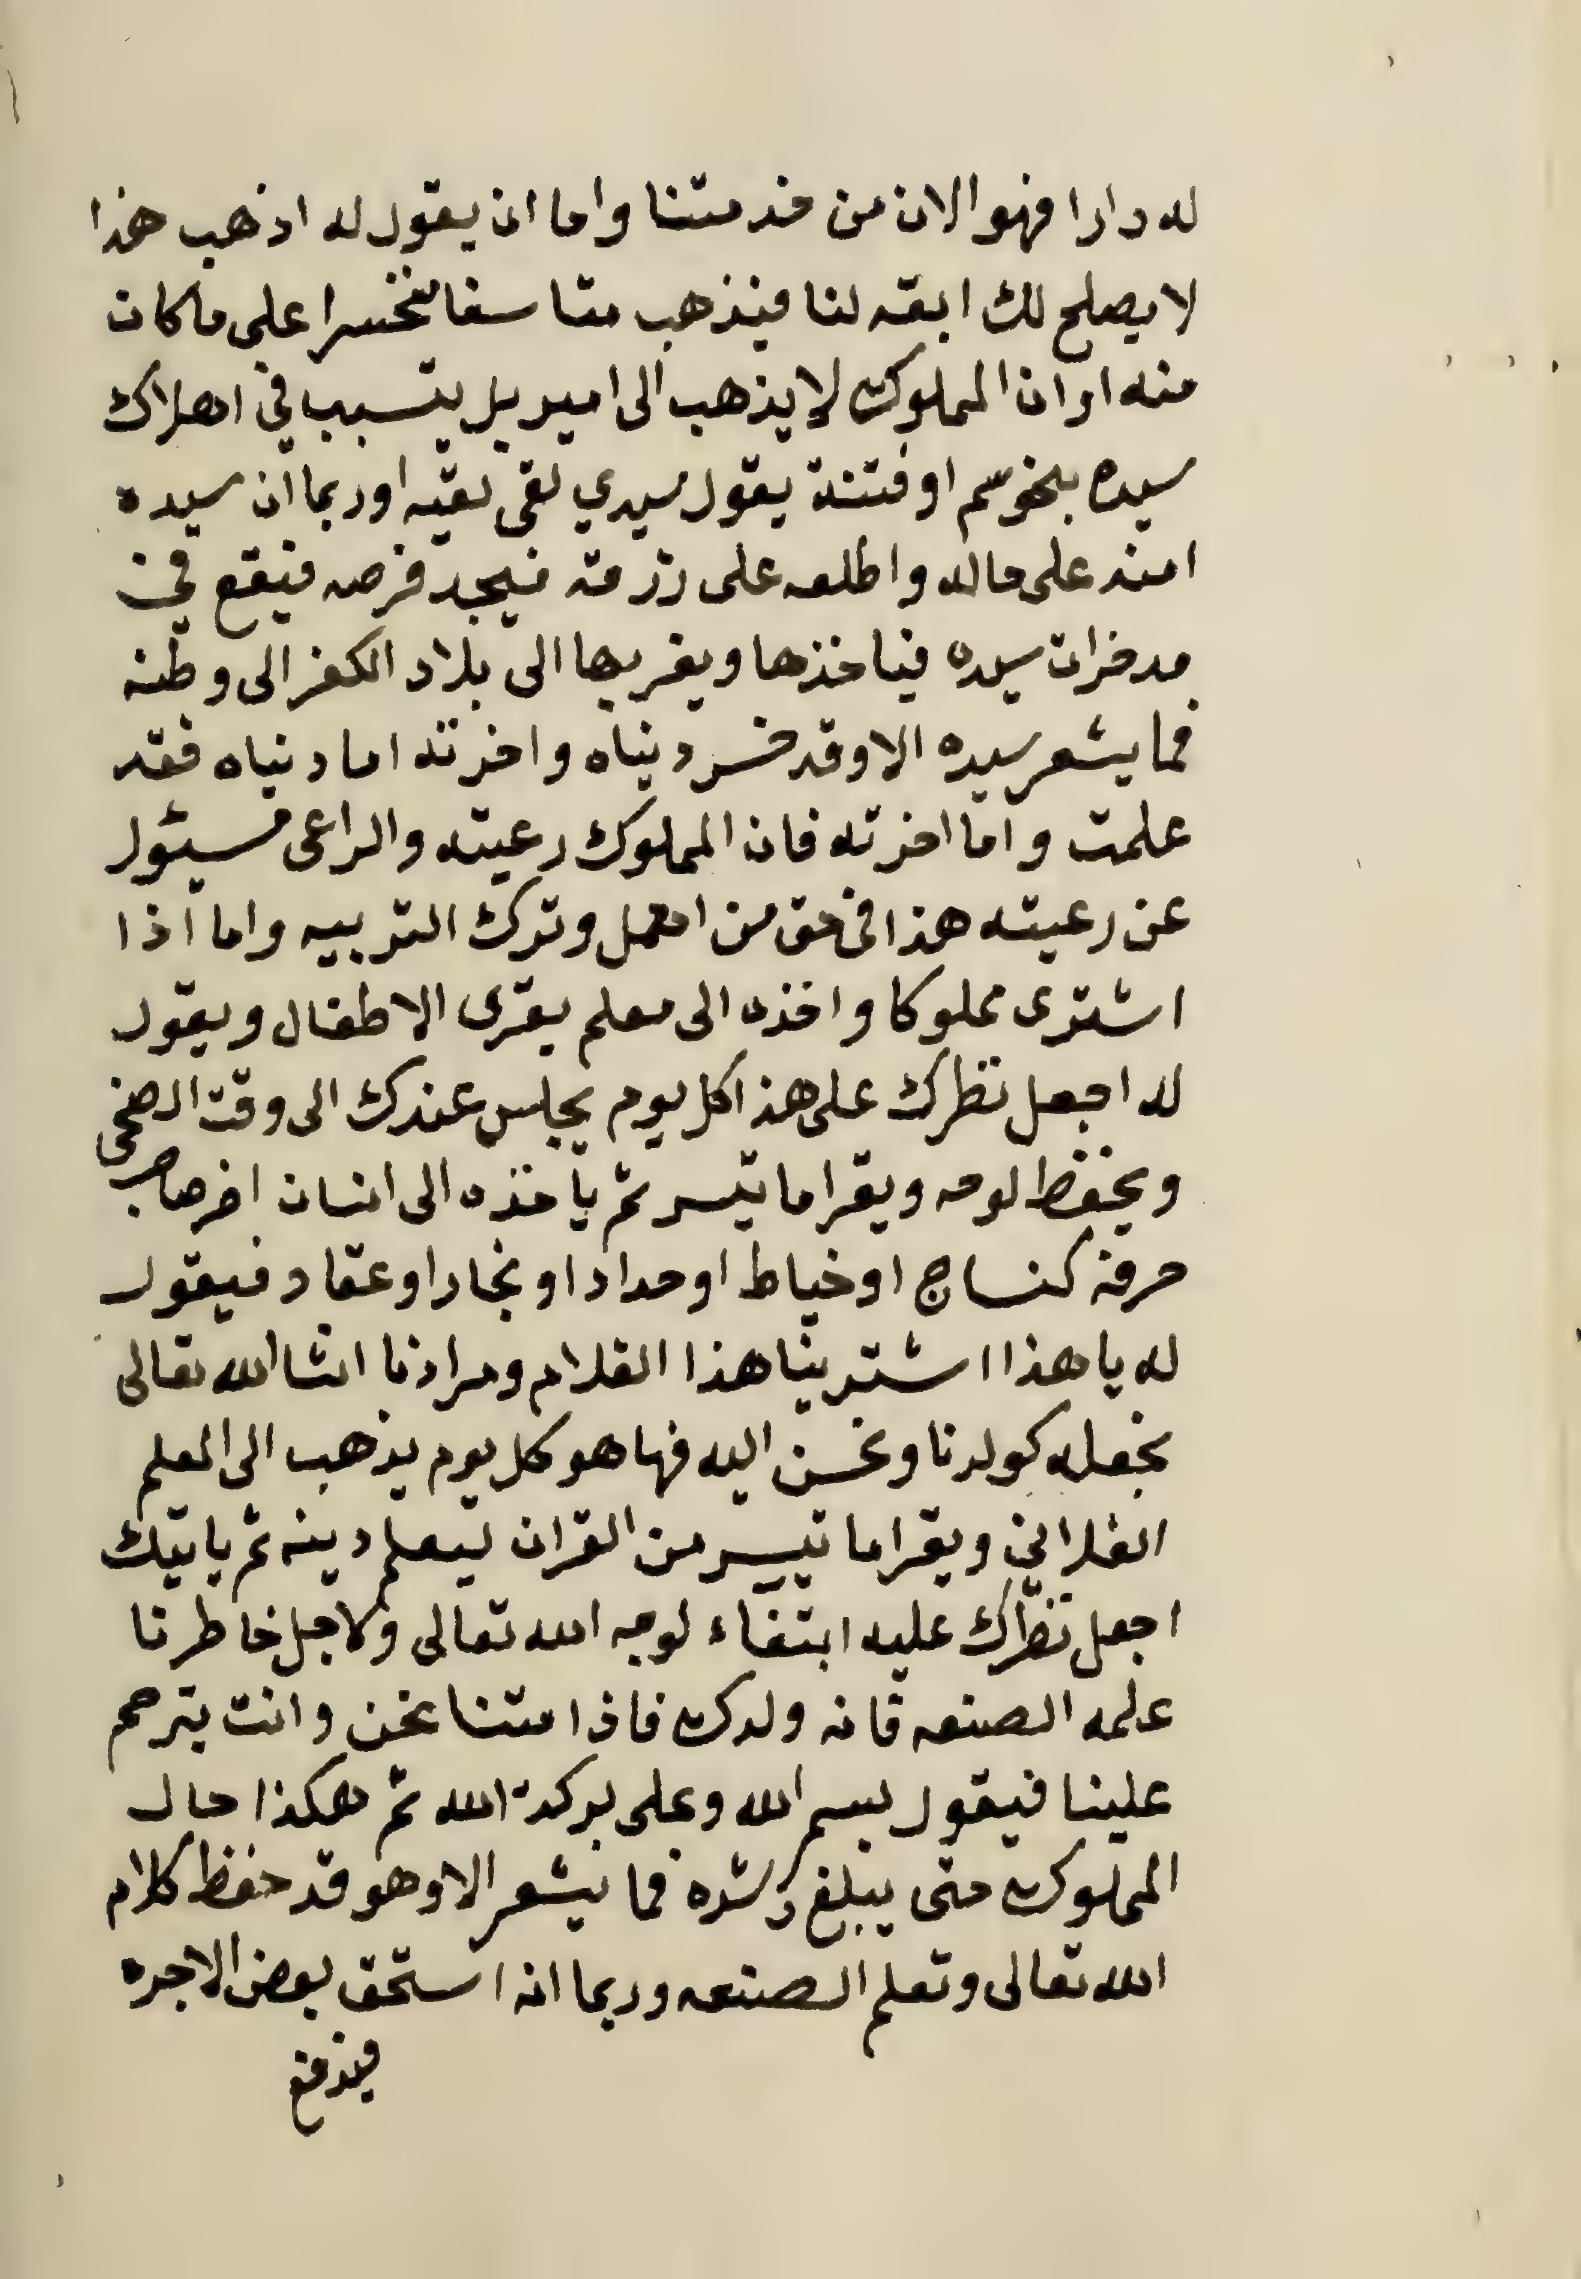 له دارا فهو الان من خدمتنا واما ان يقول له اذهب هذا
لا يصلح لك ابقه لنا فيذهب متاسفا متحسرا على ما كان
منه او ان المملوك لا يذهب الى امير بل يتسبب في اهلاك
سيده بنحو سم او فتنة يقول سيدي لقى لقيه او ربما ان سيده
امنه على ماله واطلعه على رزمته فيجد فرصه فيقع في
مدخرات سيده فياخذها ويفر بها الى بلاد الكفر الى وطنه
فما يشعر سيده الا وقد خسر دنياه واخرته اما دنياه فقد
علمت واما اخرته فان المملوك رعيته والراعى مسئول
عن رعيته هذا فى حق من اهمل وترك التربيه واما اذا
اشترى مملوكا واخذه الى معلم يقرى الاطفال ويقول
له اجعل نظرك على هذا كل يوم يجلس عندك الى وقت الضحى
ويحفظ لوحه ويقرا ما تيسر ثم ياخذه الى انسان اخر صاحب
حرفة كنساج او خياط او حداد او نجار او عقاد فيقول
له يا هذا اشترينا هذا الغلام ومرادنا انشا الله تعالى
نجعله كولدنا ونحسن اليه فها هو كل يوم يذهب الى المعلم
الفلاني ويقرا ما تيسر من القران ليتعلم دينه ثم ياتيك
اجعل نظرك عليه ابتغاء لوجه الله تعالى ولاجل خاطرنا
علمه الصنعه فانه ولدك فاذا متنا نحن وانت يترحم
علينا فيقول بسم الله وعلى بركة الله ثم هكذا حال
المملوك حتى يبلغ رشده فما يشعر الا وهو قد حفظ كلام
الله تعالى وتعلم الصنعه وربما انه استحق بعض الاجره
فيدفع